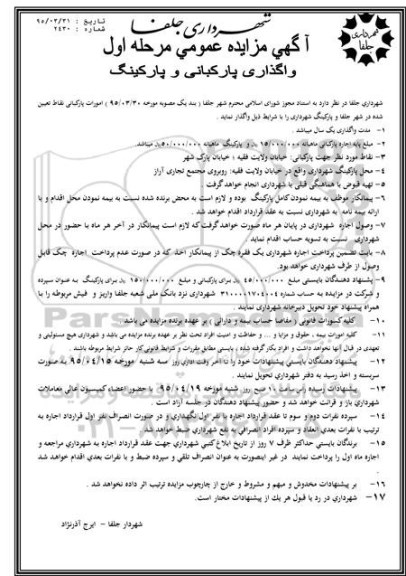 تاریخ : ۹۵/۰۳/۳۱
شماره : ۲۴۳۰
شهرداری جلفا
آگهي مزايده عمومي مرحله اول
واگذاری پارکبانی و پارکینگ
شهرداری جلفا در نظر دارد به استناد مجوز شورای اسلامی محترم شهر جلفا ( بند یک مصوبه مورخه ۹۵/۰۳/۳۰ ) امورات پارکبانی نقاط تعیین
شده در شهر جلفا و پارکینگ شهرداری را با شرایط ذیل واگذار نماید .
۱- مدت واگذاری یک سال میباشد .
۲- مبلغ پایه اجاره پارکبانی ماهیانه ۱۵/۰۰۰/۰۰۰ ریال و پارکینگ ماهیانه ۵۰/۰۰۰/۰۰۰ ریال میباشد.
۳- نقاط مورد نظر جهت پارکبانی: خیابان ولایت فقیه ؛ خیابان پارک شهر
۴- محل پارکینگ شهرداری واقع در خیابان ولایت فقیه: روبروی مجتمع تجاری آراز
۵- تهیه قبوض با هماهنگی قبلی با شهرداری انجام خواهد گرفت .
۶- پیمانکار موظف به بیمه نمودن کامل پارکینگ بوده و لازم است به محض برنده شدن نسبت به بیمه نمودن محل اقدام و با
ارائه بیمه نامه به شهرداری نسبت به عقد قرارداد اقدام خواهد شد .
۷- وصول اجاره شهرداری در پایان هر ماه صورت خواهد گرفت که لازم است پیمانکار در آخر هر ماه با حضور در محل
شهرداری نسبت به تسویه حساب اقدام نماید
۸- بابت تضمین پرداخت اجاره شهرداری یک فقره چک از پیمانکار اخذ که در صورت عدم پرداخت اجاره چک قابل
وصول از طرف شهرداری خواهد بود.
۹- پیشنهاد دهندگان بایستی مبلغ ۴۵/۰۰۰/۰۰۰ ریال برای پارکبانی و مبلغ ۱۵۰/۰۰۰/۰۰۰ ریال برای پارکینگ به عنوان سپرده
و شرکت در مزایده به حساب شماره ۳۱۰۰۰۰۱۷۰۴۰۰۴ شهرداری نزد بانک ملی شعبه جلفا واریز و فیش مربوطه را با
همراه پیشنهاد خود تحویل دبیرخانه شهرداری نمایند .
۱۰- کلیه کسورات قانونی ( مفاصا حساب بیمه و دارائی ) بر عهده برنده مزایده می باشد .
۱۱- کلیه امورات بیمه ، حقوق و مزایا و ... و حفاظت و امنیت افراد تحت نظر بر عهده برنده مزایده می باشد و شهرداری هیچ مسئولیتی و
تعهدی در قبال آنها نخواهد داشت و افراد بکار گرفته شده ، بایستی مطابق مقررات و شرایط قانونی کار حائز شرایط مربوطه باشند .
۱۲- پیشنهاد دهندگان بایستی پیشنهادات خود را تا آخر وقت اداری روز سه شنبه مورخه ۹۵/۰۴/۱۵ به صورت
سربسته و اخذ رسید به دفتر شهرداری تحویل نمایند.
۱۳- پیشنهادات رسیده راس ساعت ۱۰ صبح روز شنبه مورخه ۹۵/۰۴/۱۹ با حضور اعضاء کمیسیون عالی معاملات
شهرداری باز و قرائت خواهد شد و حضور پیشنهاد دهندگان در جلسه آزاد است .
۱۴- سپرده نفرات دوم و سوم تا عقد قرارداد اجاره با نفر اول نگهداری و در صورت انصراف نفر اول قرارداد اجاره به
ترتیب با نفرات بعدی انعقاد و سپرده افراد انصرافی به نفع شهرداری ضبط خواهد شد
۱۵- برندگان بایستی حداکثر ظرف ۷ روز از تاریخ ابلاغ کتبی شهرداری جهت عقد قرارداد اجاره به شهرداری مراجعه و
اجاره ماه اول را پرداخت نمایند در غیر اینصورت به عنوان انصراف تلقی و سپرده ضبط و با نفرات بعدی اقدام خواهد شد
.
۱۶- بر پیشنهادات مخدوش و مبهم و مشروط و خارج از چارچوب مزایده ترتیب اثر داده نخواهد شد .
۱۷- شهرداری در رد یا قبول هر یک از پیشنهادات مختار است.
شهردار جلفا - ایرج آذرنژاد